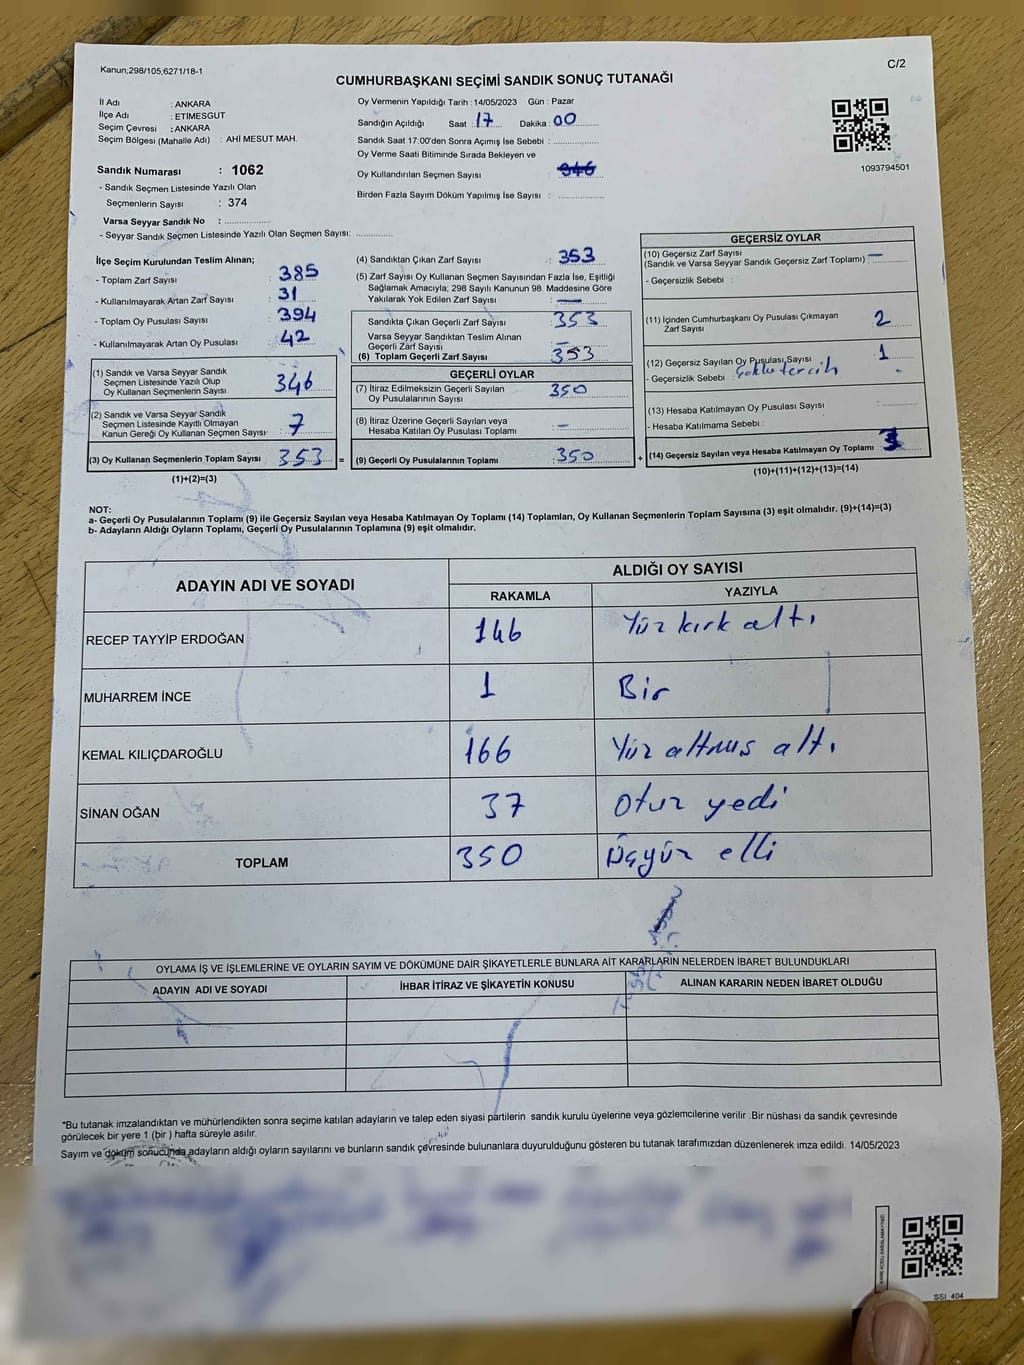 Kanun;298/105;6271/18-1
C/2
CUMHURBAŞKANI SEÇİMİ SANDIK SONUÇ TUTANAĞI
İl Adı : ANKARA
İlçe Adı : ETİMESGUT
Seçim Çevresi : ANKARA
Seçim Bölgesi (Mahalle Adı) : AHİ MESUT MAH.
Sandık Numarası : 1062
- Sandık Seçmen Listesinde Yazılı Olan
Seçmenlerin Sayısı : 374
Varsa Seyyar Sandık No : ..............
- Seyyar Sandık Seçmen Listesinde Yazılı Olan Seçmen Sayısı: ............
Oy Vermenin Yapıldığı Tarih : 14/05/2023 Gün : Pazar
Sandığın Açıldığı Saat : 17 Dakika : 00
Sandık Saat 17:00'den Sonra Açımış İse Sebebi : ..............
Oy Verme Saati Bitiminde Sırada Bekleyen ve
Oy Kullandırılan Seçmen Sayısı : 346
Birden Fazla Sayım Döküm Yapılmış İse Sayısı : ..............
1093794501
İlçe Seçim Kurulundan Teslim Alınan;
- Toplam Zarf Sayısı : 385
- Kullanılmayarak Artan Zarf Sayısı : 31
- Toplam Oy Pusulası Sayısı : 394
- Kullanılmayarak Artan Oy Pusulası : 42
(1) Sandık ve Varsa Seyyar Sandık
Seçmen Listesinde Yazılı Olup
Oy Kullanan Seçmenlerin Sayısı : 346
(2) Sandık ve Varsa Seyyar Sandık
Seçmen Listesinde Kayıtlı Olmayan
Kanun Gereği Oy Kullanan Seçmen Sayısı : 7
(3) Oy Kullanan Seçmenlerin Toplam Sayısı : 353 =
(1)+(2)=(3)
(4) Sandıktan Çıkan Zarf Sayısı : 353
(5) Zarf Sayısı Oy Kullanan Seçmen Sayısından Fazla İse, Eşitliği
Sağlamak Amacıyla; 298 Sayılı Kanunun 98. Maddesine Göre
Yakılarak Yok Edilen Zarf Sayısı : —
Sandıkta Çıkan Geçerli Zarf Sayısı : 353
Varsa Seyyar Sandıktan Teslim Alınan
Geçerli Zarf Sayısı : —
(6) Toplam Geçerli Zarf Sayısı : 353
GEÇERLİ OYLAR
(7) İtiraz Edilmeksizin Geçerli Sayılan
Oy Pusulalarının Sayısı : 350
(8) İtiraz Üzerine Geçerli Sayılan veya
Hesaba Katılan Oy Pusulası Toplamı : —
(9) Geçerli Oy Pusulalarının Toplamı : 350 +
GEÇERSİZ OYLAR
(10) Geçersiz Zarf Sayısı
(Sandık ve Varsa Seyyar Sandık Geçersiz Zarf Toplamı) : —
- Geçersizlik Sebebi :
(11) İçinden Cumhurbaşkanı Oy Pusulası Çıkmayan
Zarf Sayısı : 2
(12) Geçersiz Sayılan Oy Pusulası Sayısı : 1
- Geçersizlik Sebebi : Çoklu tercih
(13) Hesaba Katılmayan Oy Pusulası Sayısı : ..............
- Hesaba Katılmama Sebebi :
(14) Geçersiz Sayılan veya Hesaba Katılmayan Oy Toplamı : 3
(10)+(11)+(12)+(13)=(14)
NOT:
a- Geçerli Oy Pusulalarının Toplamı (9) ile Geçersiz Sayılan veya Hesaba Katılmayan Oy Toplamı (14) Toplamları, Oy Kullanan Seçmenlerin Toplam Sayısına (3) eşit olmalıdır. (9)+(14)=(3)
b- Adayların Aldığı Oyların Toplamı, Geçerli Oy Pusulalarının Toplamına (9) eşit olmalıdır.
ADAYIN ADI VE SOYADI
ALDIĞI OY SAYISI
RAKAMLA YAZIYLA
RECEP TAYYİP ERDOĞAN 146 Yüz kırk altı
MUHARREM İNCE 1 Bir
KEMAL KILIÇDAROĞLU 166 Yüz altmış altı
SİNAN OĞAN 37 Otuz yedi
TOPLAM 350 Üçyüz elli
OYLAMA İŞ VE İŞLEMLERİNE VE OYLARIN SAYIM VE DÖKÜMÜNE DAİR ŞİKAYETLERLE BUNLARA AİT KARARLARIN NELERDEN İBARET BULUNDUKLARI
ADAYIN ADI VE SOYADI İHBAR İTİRAZ VE ŞİKAYETİN KONUSU ALINAN KARARIN NEDEN İBARET OLDUĞU
*Bu tutanak imzalandıktan ve mühürlendikten sonra seçime katılan adayların ve talep eden siyasi partilerin sandık kurulu üyelerine veya gözlemcilerine verilir .Bir nüshası da sandık çevresinde
görülecek bir yere 1 (bir ) hafta süreyle asılır.
Sayım ve döküm sonucunda adayların aldığı oyların sayılarını ve bunların sandık çevresinde bulunanlara duyurulduğunu gösteren bu tutanak tarafımızdan düzenlenerek imza edildi. 14/05/2023
SSI 404